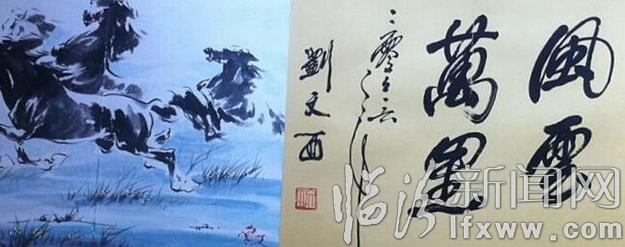 風雲
萬里
劉文西
临汾新闻网
lfxww.com